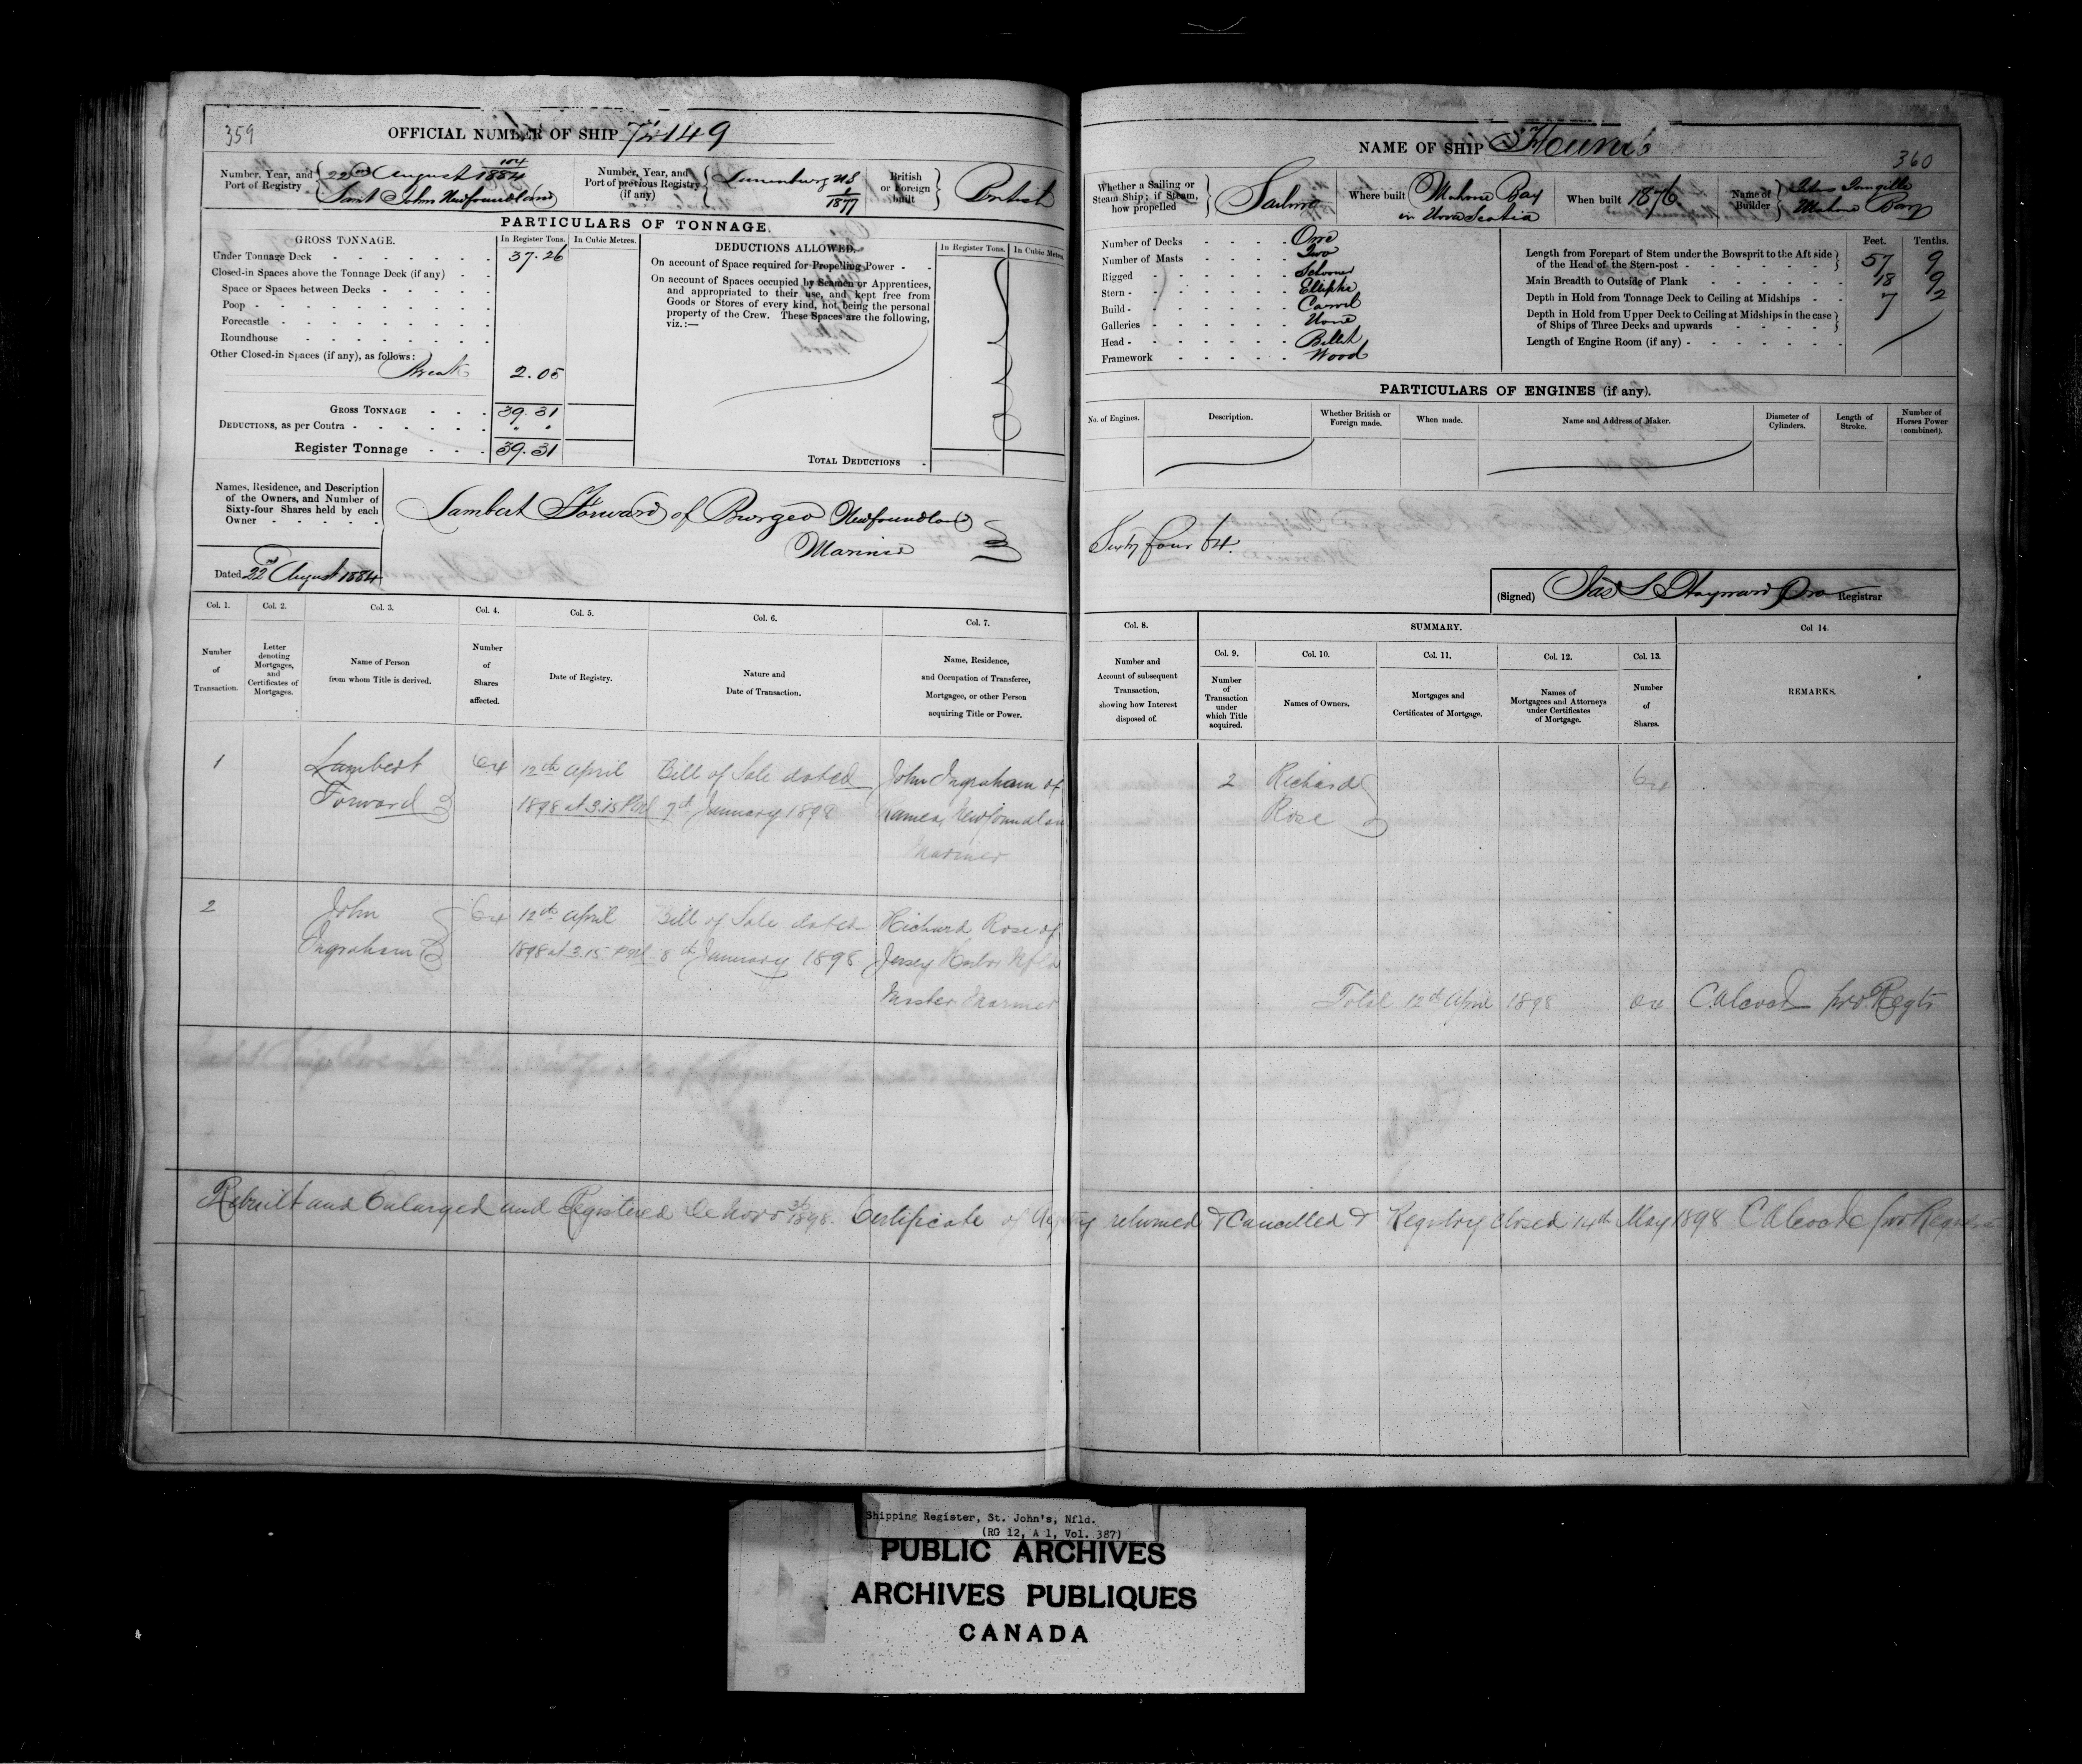 359
OFFICIAL NUMBER OF SHIP
Number, Year, and Port of Registry
22nd August 1884
Saint Johns Newfoundland
Number, Year, and Port of previous Registry (if any)
Lunenburg NS
1877
British or Foreign built
British
PARTICULARS OF TONNAGE.
GROSS TONNAGE.
In Register Tons.
In Cubic Metres.
Under Tonnage Deck 37.26
Closed-in Spaces above the Tonnage Deck (if any)
Space or Spaces between Decks
Poop
Forecastle
Roundhouse
Other Closed-in Spaces (if any), as follows:
Break 2.05
GROSS TONNAGE 39.31
DEDUCTIONS, as per Contra
Register Tonnage 39.31
DEDUCTIONS ALLOWED.
In Register Tons.
In Cubic Metres
On account of Space required for Propelling Power
On account of Spaces occupied by Seamen or Apprentices,
and appropriated to their use, and kept free from
Goods or Stores of every kind, not being the personal
property of the Crew. These Spaces are the following,
viz.:—
TOTAL DEDUCTIONS
Names, Residence, and Description
of the Owners, and Number of
Sixty-four Shares held by each
Owner
Lambert Forward of Burgeo Newfoundland
Mariner
Dated 22nd August 1884
Col. 1. Col. 2. Col. 3. Col. 4. Col. 5. Col. 6. Col. 7.
Number of Transaction.
Letter denoting Mortgages, and Certificates of Mortgages.
Name of Person from whom Title is derived.
Number of Shares affected.
Date of Registry.
Nature and Date of Transaction.
Name, Residence, and Occupation of Transferee, Mortgagee, or other Person acquiring Title or Power.
1 Lambert 64 12th April Bill of Sale dated John Ingraham of
Forward 1898 at 3.15 PM 7th January 1898 Ramea, Newfoundlan
Mariner
2 John 64 12th April Bill of Sale dated Richard Rose of
Ingraham 1898 at 3.15 PM 8th January 1898 Jersey Harbor Nfld
Master Mariner
NAME OF SHIP
360
Whether a Sailing or Steam Ship; if Steam, how propelled
Sailing
Where built
Mahone Bay
in Nova Scotia
When built 1876
Name of Builder
Mahone Bay
Number of Decks One
Number of Masts Two
Rigged Schooner
Stern Elliptic
Build Carvel
Galleries None
Head Billet
Framework Wood
Feet. Tenths.
Length from Forepart of Stem under the Bowsprit to the Aft side
of the Head of the Stern-post 57 9
Main Breadth to Outside of Plank 18 9
Depth in Hold from Tonnage Deck to Ceiling at Midships 7 2
Depth in Hold from Upper Deck to Ceiling at Midships in the case
of Ships of Three Decks and upwards
Length of Engine Room (if any)
PARTICULARS OF ENGINES (if any).
No. of Engines.
Description.
Whether British or Foreign made.
When made.
Name and Address of Maker.
Diameter of Cylinders.
Length of Stroke.
Number of Horses Power (combined).
Sixty four 64.
(Signed) Registrar
Col. 8.
SUMMARY.
Col 14.
Col. 9. Col. 10. Col. 11. Col. 12. Col. 13.
Number and Account of subsequent Transaction, showing how Interest disposed of.
Number of Transaction under which Title acquired.
Names of Owners.
Mortgages and Certificates of Mortgage.
Names of Mortgagees and Attorneys under Certificates of Mortgage.
Number of Shares.
REMARKS.
2 Richard 64
Rose
Total 12th April 1898 64
Rebuilt and Enlarged and Registered De Novo 1898. Certificate of Registry returned & Cancelled & Registry closed 14th May 1898
Shipping Register, St. John's, Nfld.
(RG 12, A 1, Vol. 387)
PUBLIC ARCHIVES
ARCHIVES PUBLIQUES
CANADA